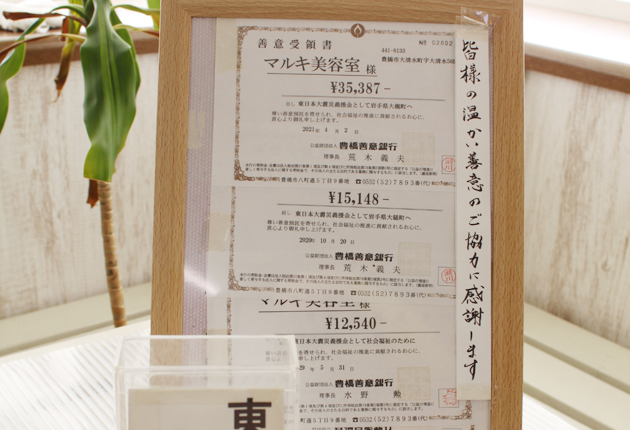 善意受領書
№ 02032
441-8133
豊橋市大清水町字大清水568
マルキ美容室 様
¥35,387−
但し 東日本大震災義援金として岩手県大槌町へ
尊い善意預託を寄せられ、社会福祉の推進に貢献されるお心に、
衷心より御礼申し上げます。
2021年 4月 2日
公益財団法人 豊橋善意銀行
理事長 荒木義夫
豊橋市八町通5丁目9番地 ☎0532(52)7893番(代)
¥15,148−
但し 東日本大震災義援金として岩手県大槌町へ
尊い善意預託を寄せられ、社会福祉の推進に貢献されるお心に、
衷心より御礼申し上げます。
2020年 10月 20日
公益財団法人 豊橋善意銀行
理事長 荒木義夫
豊橋市八町通5丁目9番地 ☎0532(52)7893番(代)
マルキ美容室 様
¥12,540−
東日本大震災義援金として社会福祉のために
を寄せられ、社会福祉の推進に貢献されるお心に、
申し上げます。
年 5月 31日
公益財団法人 豊橋善意銀行
理事長 水野 勲
町通5丁目9番地 ☎0532(52)7893番(代)
皆様の温かい善意のご協力に感謝します
東